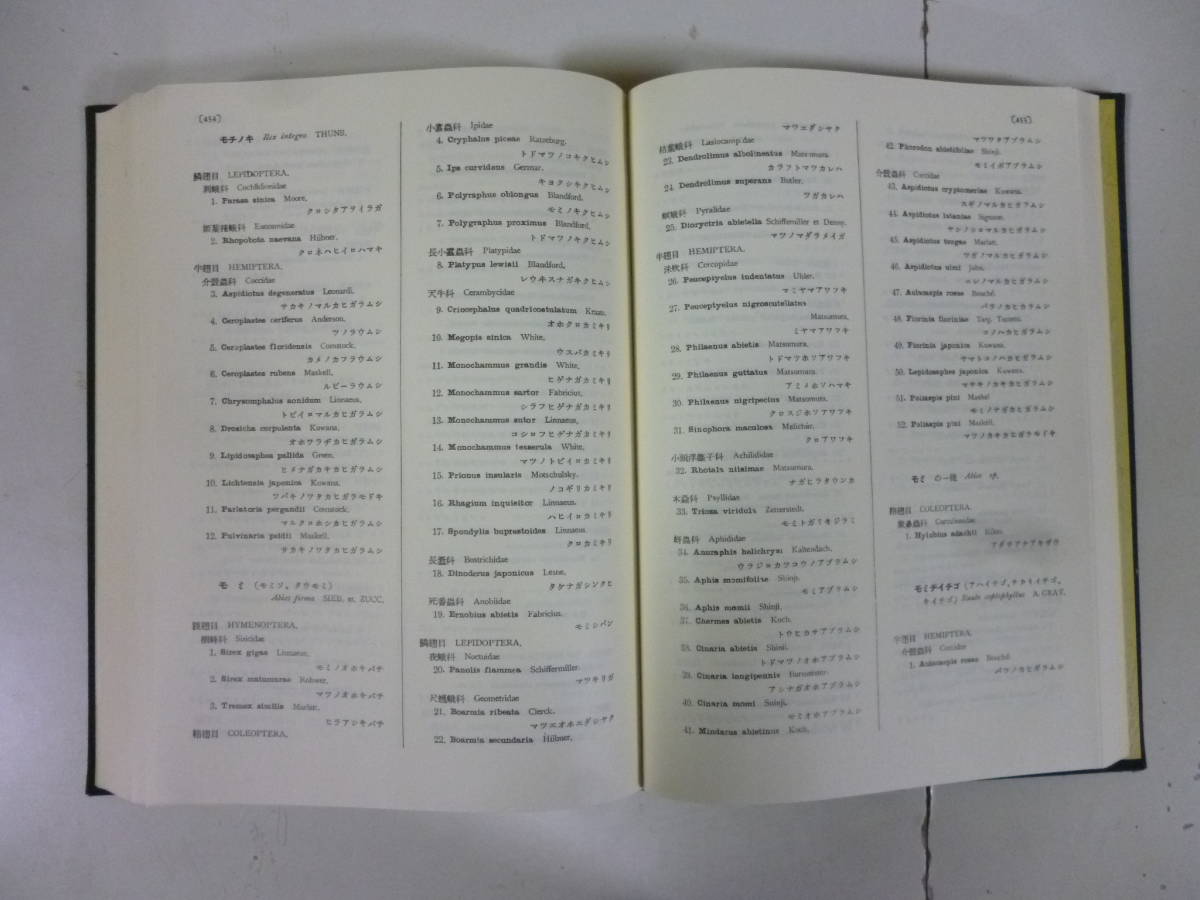 (454)
モチノキ Ilex integra THUNB.
鱗翅目 LEPIDOPTERA.
刺蛾科 Cochlidionidae
1. Parasa sinica Moore,
クロシタアヲイラガ
姬葉捲蛾科 Eucosmidae
2. Rhopobota naevana Hübner,
クロネハヒイロハマキ
半翅目 HEMIPTERA.
介殼蟲科 Coccidae
3. Aspidiotus degeneratus Leonardi,
サカキノマルカヒガラムシ
4. Ceroplastes ceriferus Anderson,
ツノラウムシ
5. Ceroplastes floridensis Comstock,
カメノカフラウムシ
6. Ceroplastes rubens Maskell,
ルビーラウムシ
7. Chrysomphalus aonidum Linnaeus,
トビイロマルカヒガラムシ
8. Drosicha corpulenta Kuwana,
オホワラヂカヒガラムシ
9. Lepidosaphes pallida Green,
ヒメナガカキカヒガラムシ
10. Lichtensia japonica Kuwana,
ツバキノワタカヒガラモドキ
11. Parlatoria pergandii Comstock,
マルクロホシカヒガラムシ
12. Pulvinaria psidii Maskell,
サカキノワタカヒガラムシ
モミ (モミソ, タウモミ)
Abies firma SIEB. et. ZUCC,
膜翅目 HYMENOPTERA.
樹蜂科 Siricidae
1. Sirex gigas Linnaeus,
モミノオホキバチ
2. Sirex matsumurae Rohwer,
マツノオホキバチ
3. Tremex similis Marlatt,
ヒラアシキバチ
鞘翅目 COLEOPTERA.
小蠹蟲科 Ipidae
4. Cryphalus piceae Ratzeburg,
トドマツノコキクヒムシ
5. Ips curvidens Germar,
キヨクシキクヒムシ
6. Polyraphus oblongus Blandford,
モミノキクヒムシ
7. Polygraphus proximus Blandford,
トドマツノキクヒムシ
長小蠹蟲科 Platypidae
8. Platypus lewisii Blandford,
レウキスナガキクヒムシ
天牛科 Cerambycidae
9. Criocephalus quadricostulatum Kraaz,
オホクロカミキリ
10. Megopis sinica White,
ウスバカミキリ
11. Monochammus grandis White,
ヒゲナガカミキリ
12. Monochammus sartor Fabricius,
シラフヒゲナガカミキリ
13. Monochammus sutor Linnaeus,
コシロフヒゲナガカミキリ
14. Monochammus tesserula White,
マツノトビイロカミキリ
15. Prionus insularis Motschulsky,
ノコギリカミキリ
16. Rhagium inquisitor Linnaeus,
ハヒイロカミキリ
17. Spondylis buprestoides Linnaeus
クロカミキリ
長蠹科 Bostrichidae
18. Dinoderus japonicus Lesne,
タケナガシンクヒ
死番蟲科 Anobiidae
19. Ernobius abietis Fabricius,
モミシバン
鱗翅目 LEPIDOPTERA,
夜蛾科 Noctuidae
20. Panolis flammea Schiffermiller,
マツキリガ
尺蠖蛾科 Geometridae
21. Boarmia ribeata Clerck,
マツエオホエダシヤク
22. Boarmia secundaria Hübner,
(455)
マツエダシヤク
枯葉蛾科 Lasiocampidae
23. Dendrolimus albolineatus Matsumura.
カラフトマツカレハ
24. Dendrolimus superans Butler,
ツガカレハ
螟蛾科 Pyralidae
25. Dioryctria abietella Schiffemiller et Denny,
マツノマダラメイガ
半翅目 HEMIPTERA.
沫吹科 Cercopidae
26. Peuceptyelus indentatus Uhler,
マミヤマアワフキ
27. Peuceptyelus nigroscutellatus
Matsumura,
ミヤマアワフキ
28. Philaenus abietis Matsumura,
トドマツホソアワフキ
29. Philaenus guttatus Matsumura.
アミメホソハマキ
30. Philaenus nigripecius Matsumura,
クロスジホソアワフキ
31. Sinophora maculosa Melichar,
クロアワフキ
小頭浮塵子科 Achilididae
32. Rhotala nitsimae Matsumura,
ナガヒラタウンカ
木蝨科 Psyllidae
33. Trioza viridula Zetterstedt,
モミトガリキジラミ
蚜蟲科 Aphididae
34. Anuraphis helichrysi Kaltendach,
ウラジロカツコウノアブラムシ
35. Aphis momifoliae Shinji,
モミアブラムシ
36. Aphis momii Shinji,
37. Chermes abietis Koch,
トウヒカサアブラムシ
38. Cinaria abietis Shinji,
トドマツノオホアブラムシ
39. Cinaria longipennis Burmeister,
アシナガオホアブラムシ
40. Cinaria momi Shinji,
モミオホアブラムシ
41. Mindarus abietinus Koch,
マツワタアブラムシ
42. Phorodon abietifoliae Shinji,
モミイボアブラムシ
介殼蟲科 Coccidae
43. Aspidiotus cryptomeriae Kuwana,
スギノマルカヒガラムシ
44. Aspidiotus lataniae Signoret,
ヤシノシロマルカヒガラムシ
45. Aspidiotus tsugae Marlatt,
ツガノマルカヒガラムシ
46. Aspidiotus ulmi John,
ニレノマルカヒガラムシ
47. Aulacaspis rosae Bouché,
バラノカヒカラムシ
48. Fiorinia fioriniae Targ. Tozzetti,
コノハカヒガラムシ
49. Fiorinia japonica Kuwana,
ヤマトコノハカヒガラムシ
50. Lepidosaphes japonica Kuwana,
マサキノカキカヒガラムシ
51. Poliaspis pini Maskel
モミノナガカヒガラムシ
52. Poliaspis pini Maskell,
マツノカキカヒガラモドキ
モミ の一種 Abies sp.
鞘翅目 COLEOPTERA.
象鼻蟲科 Curculionidae
1. Hylobius adachii Kôno,
アダチアナアキザウ
モミヂイチゴ (アハイチゴ, サガリイチゴ,
キイチゴ) Rubus coptophyllus A. GRAY.
半翅目 HEMIPTERA.
介殼蟲科 Coccidae
1. Aulacaspis rosae Bouché,
バラノカヒガラムシ